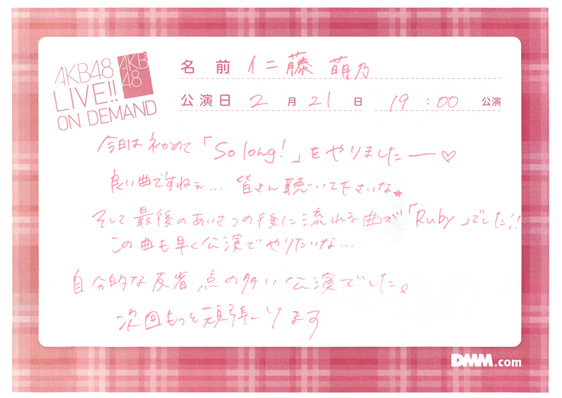 AKB48
LIVE!!
ON DEMAND
AKB
48
名 前 仁藤 萌乃
公演日 2 月 21 日 19 : 00 公演
今日は初めて「So long!」をやりましたー♡
良い曲ですねぇ... 皆さん聴いて下さいな★
そして最後のあいさつの後に流れる曲が「Ruby」でした!!
この曲も早く公演でやりたいな...
自分的な反省点の多い公演でした。
次回もっと頑張ります
DMM.com